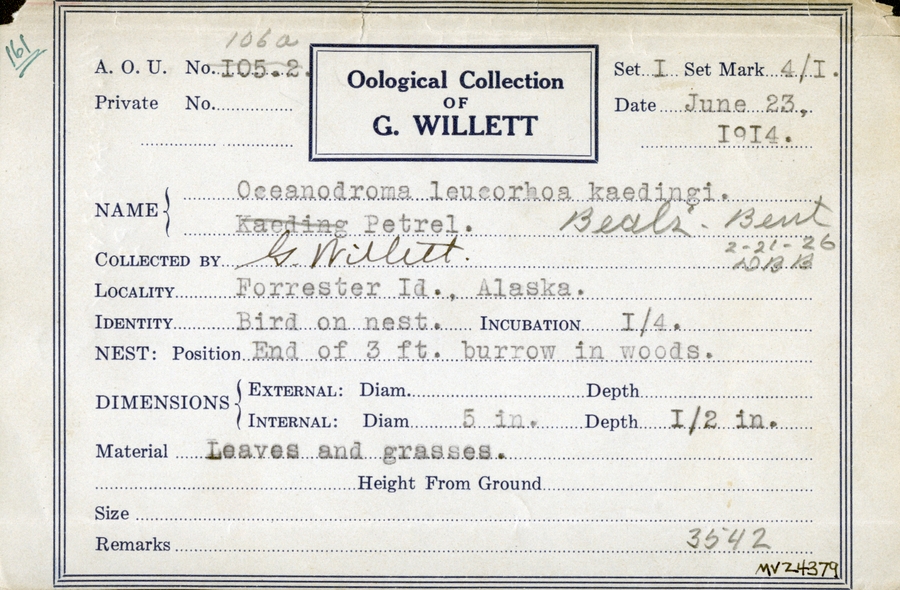 161
106a
A. O. U. No. I05.2.
Private No.
Oological Collection
OF
G. WILLETT
Set I Set Mark 4/I.
Date June 23,
I9I4.
NAME { Oceanodroma leucorhoa kaedingi.
Kaeding Petrel. Beals'. Bent
2-21-26
COLLECTED BY G. Willett.
LOCALITY Forrester Id., Alaska.
IDENTITY Bird on nest. INCUBATION I/4.
NEST: Position End of 3 ft. burrow in woods.
DIMENSIONS { EXTERNAL: Diam. Depth
INTERNAL: Diam 5 in. Depth I/2 in.
Material Leaves and grasses.
Height From Ground
Size
Remarks 3542
MVZ4379